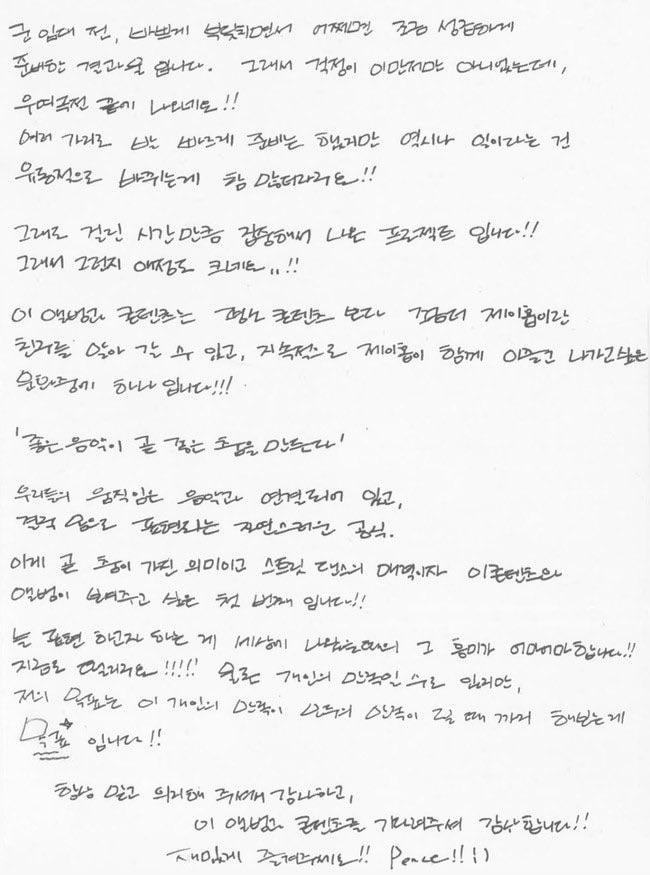 군 입대 전, 바쁘게 북닥되면서 어쩌면 조금 성급하게
준비한 결과물 입니다. 그래서 걱정이 이만저만 아니였는데,
우여곡전 끝에 나오네요!!
여러 가지로 발 빠르게 준비는 했지만 역시나 일이라는 건
유동적으로 바뀌는게 참 많더라고요!!
그래도 걸린 시간만큼 집중해서 나온 프로젝트 입니다!!
그래서 그런지 애정도 크네요..!!
이 앨범과 콘텐츠는 평소 콘텐츠 보다 좀 더 제이홉이란
친구를 알아 갈 수 있고, 지속적으로 제이홉이 함께 이끌고 나가고 싶은
문화중에 하나 입니다!!!
'좋은 음악이 곧 좋은 춤을 만든다'
우리들의 움직임은 음악과 연결되어 있고,
결국 몸으로 표현되는 자연스러운 공식.
이게 곧 춤이 가진 의미이고 스트릿 댄스의 매력이자 이 콘텐츠와
앨범이 보여주고 싶은 첫 번째 입니다!!
늘 표현 하고자 하는 게 세상에 나왔을때의 그 흥미가 어마어마합니다!!
지금도 떨려요!!!!! 물론 개인의 만족일 수도 있지만,
저의 목표는 이 개인의 만족이 모두의 만족이 될 때 까지 해보는게
목표 입니다!!
항상 믿고 의지해 주셔서 감사하고,
이 앨범과 콘텐츠를 기다려주셔 감사합니다!!
재밌게 즐겨주세요!! Peace!! :)